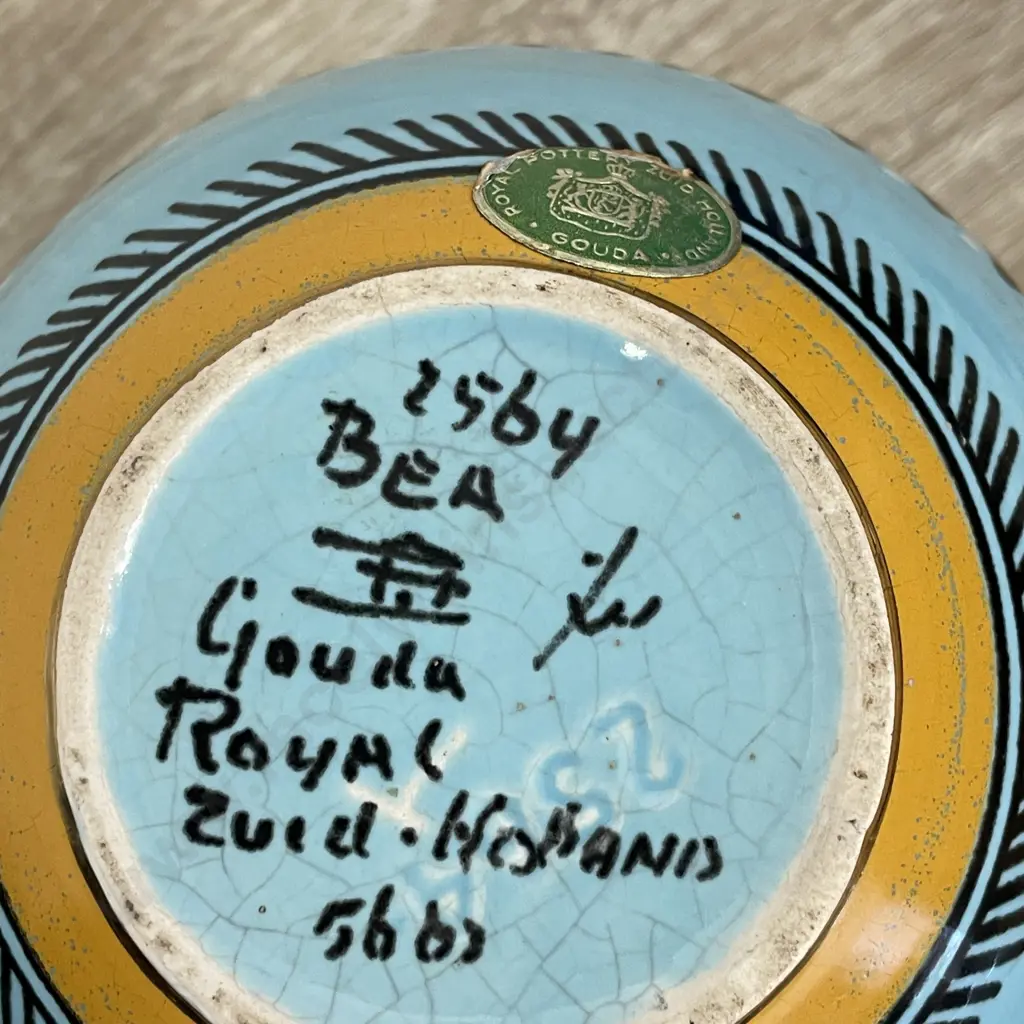 ROYAL POTTERY ZUID HOLLAND
GOUDA
2564
BEA
Gouda
ROYAL
Zuid-HOLLAND